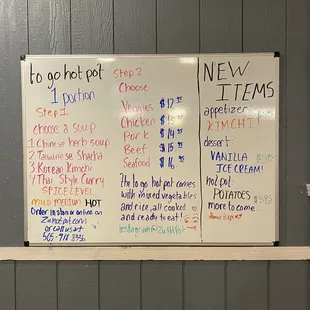 to go hot pot
1 portion
Step 1
choose a soup
1 Chinese herb soup
2. Taiwanese Shacha
3 Korean Kimchi
4 Thai Style Curry
SPICE LEVEL
MILD MEDIUM HOT
Order in store or online on
Zuhotpot.com
or call us at
Step 2
Choose
Veggies $12
Chicken $13
Pork $14
Beef $15
Seafood $16
the to go hot pot comes
with mixed vegetables
and rice, all cooked
and ready to eat!
NEW
ITEMS
appetizer
KIMCHI
dessert
VANILLA
ICE CREAM!
hot pot
POTATOES
more to come